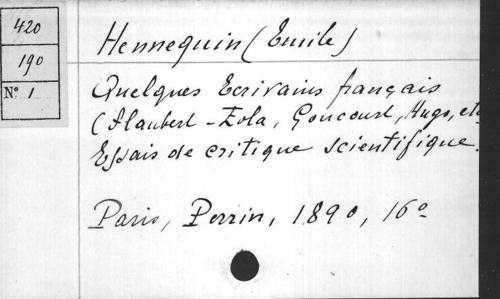 420
190
Nº 1
Hennequin (Emile)
Quelques Ecrivains français
(Flaubert - Zola, Goncourt, Hugo, etc
Essais de critique scientifique.
Paris, Perrin, 1890, 16º